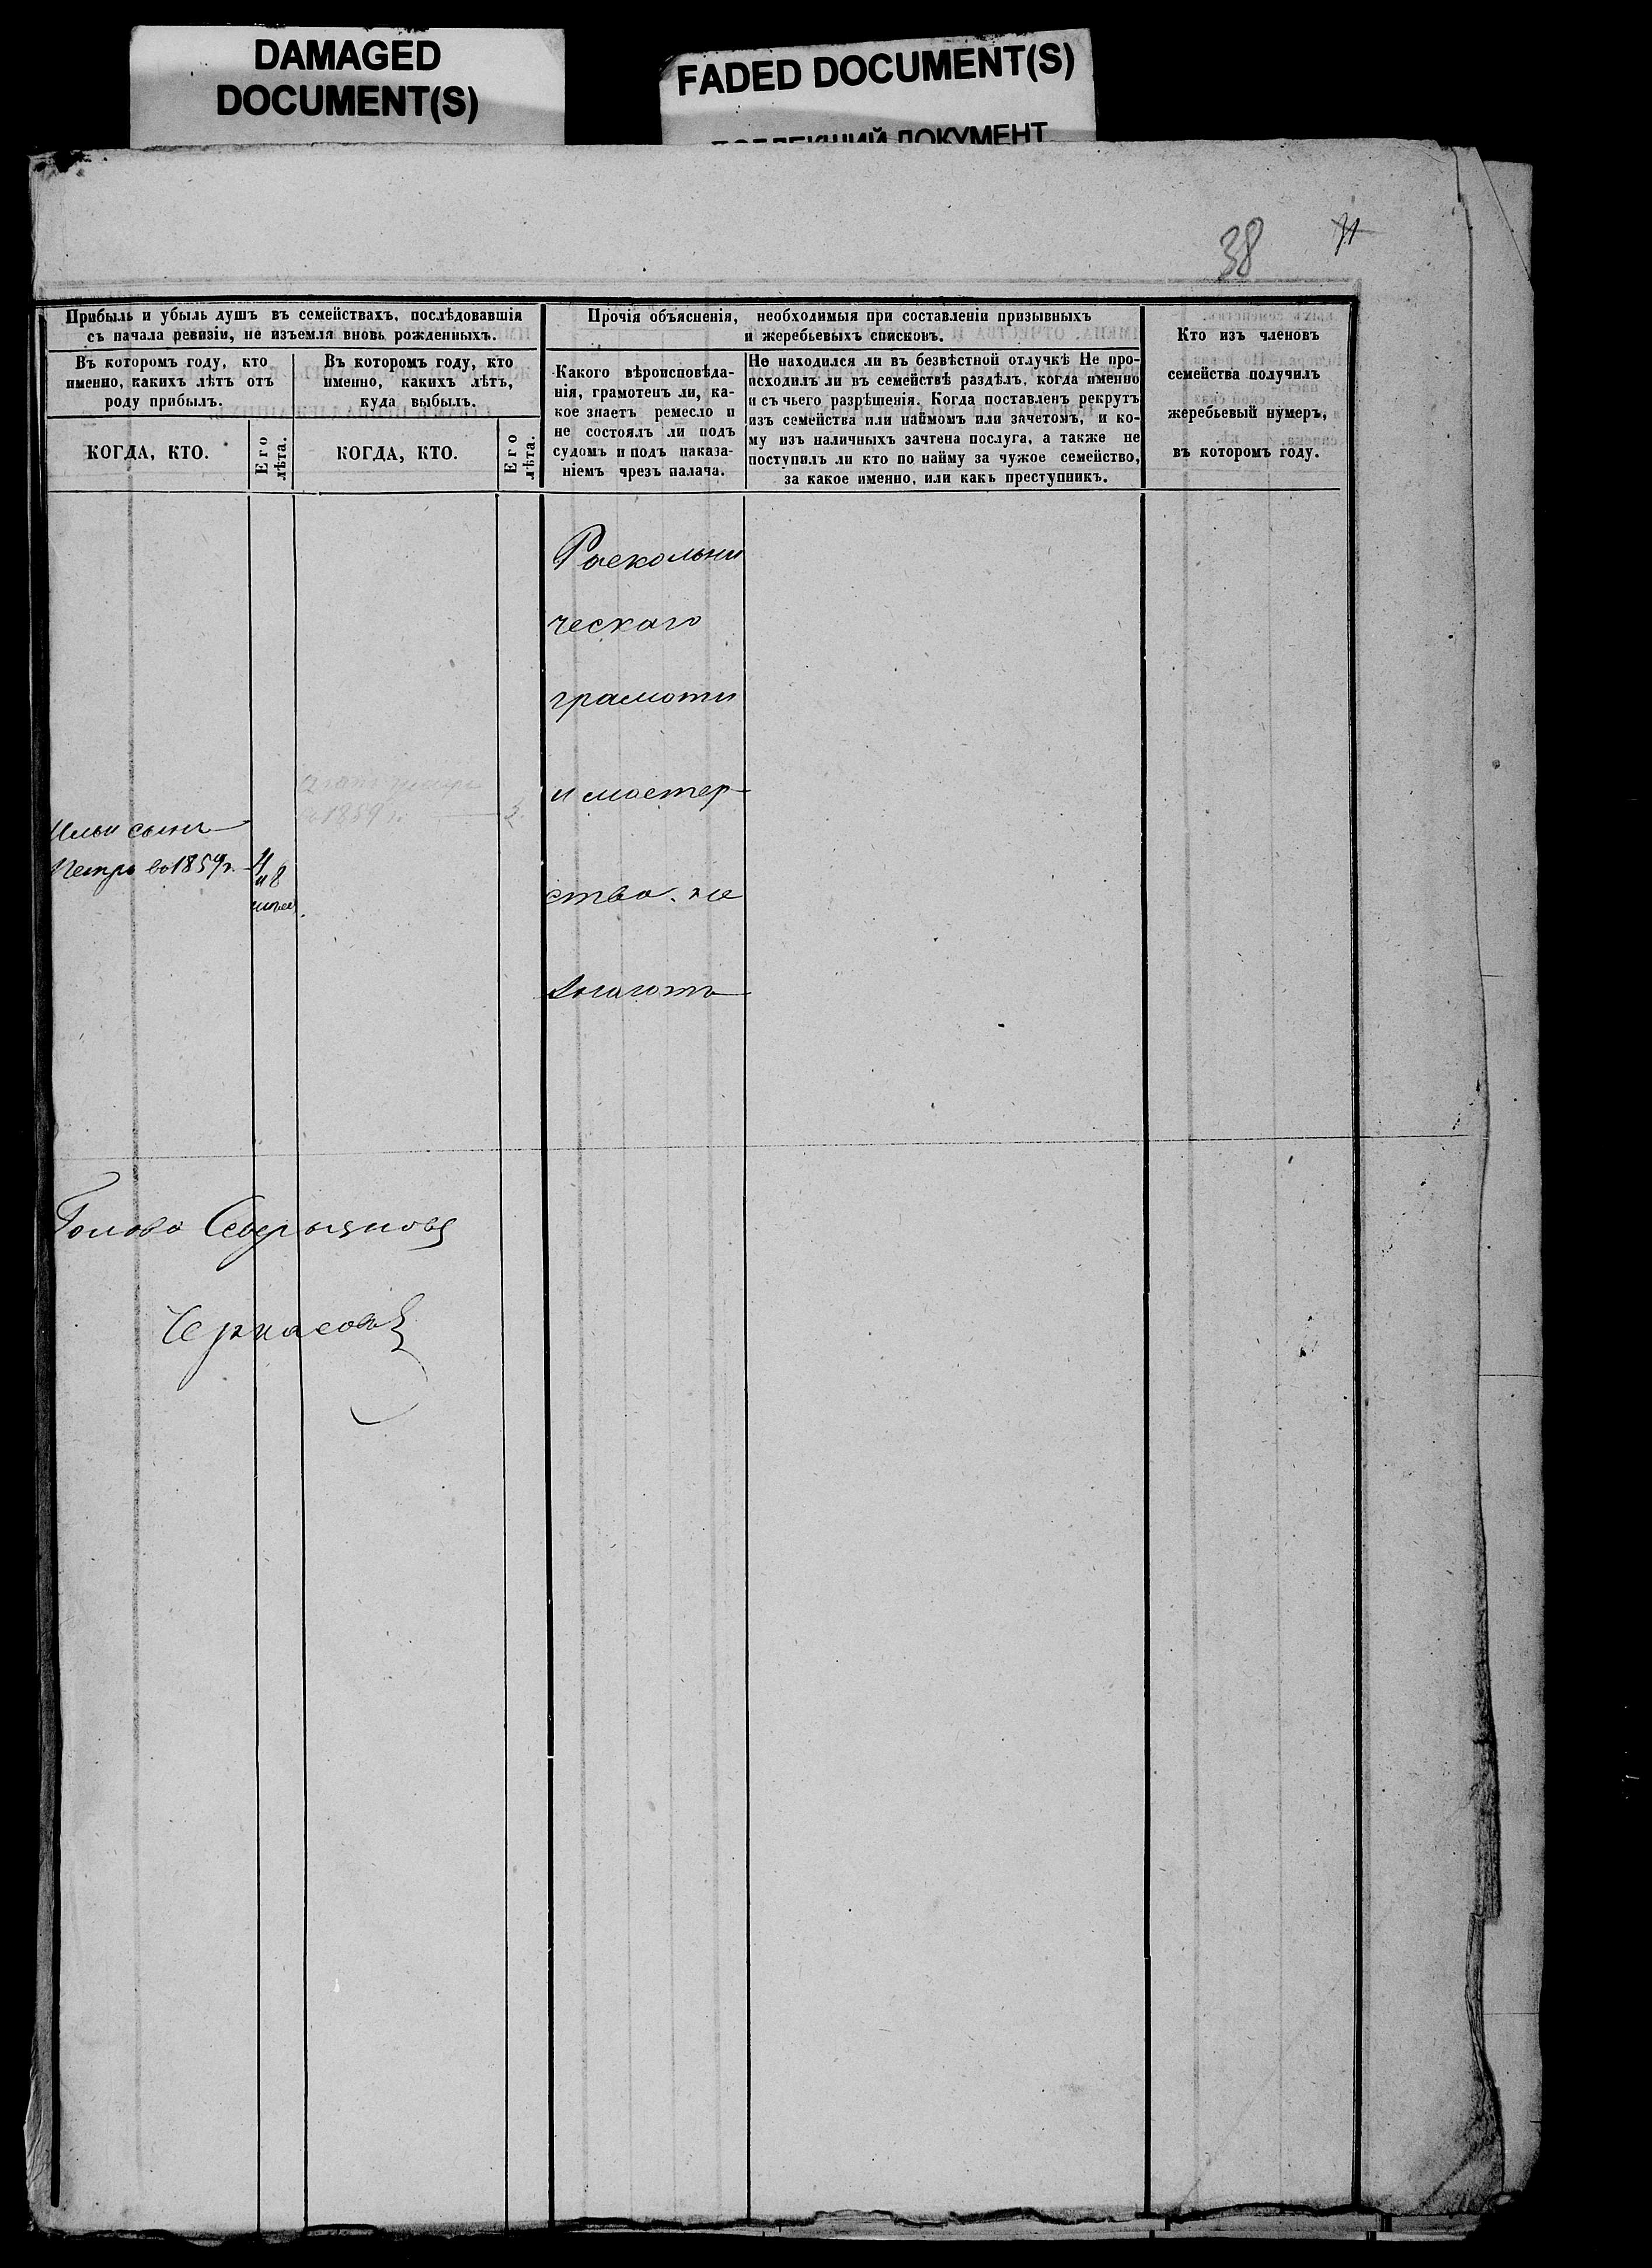 DAMAGED
DOCUMENT(S)
FADED DOCUMENT(S)
ДОКУМЕНТ
38
Прибыль и убыль душъ въ семействахъ, послѣдовавшія
съ начала ревизіи, не изъемля вновь рожденныхъ.
Въ которомъ году, кто
именно, какихъ лѣтъ отъ
роду прибылъ.
КОГДА, КТО.
Его
лѣта.
Въ которомъ году, кто
именно, какихъ лѣтъ,
куда выбылъ.
КОГДА, КТО.
Его
лѣта.
Прочія объясненія, необходимыя при составленіи призывныхъ
и жеребьевыхъ списковъ.
Какого вѣроисповѣда-
нія, грамотенъ ли, ка-
кое знаетъ ремесло и
не состоялъ ли подъ
судомъ и подъ наказа-
ніемъ чрезъ палача.
Не находился ли въ безвѣстной отлучкѣ Не про-
исходилъ ли въ семействѣ раздѣлъ, когда именно
и съ чьего разрѣшенія. Когда поставленъ рекрутъ
изъ семейства или наймомъ или зачетомъ, и ко-
му изъ наличныхъ зачтена послуга, а также не
поступилъ ли кто по найму за чужое семейство,
за какое именно, или какъ преступникъ.
Кто изъ членовъ
семейства получилъ
жеребьевый нумеръ,
въ которомъ году.
Раскольни
ческаго
грамоти
и мастер
ства не
1859 г.
Ильи сынъ
Петръ во 1859 г.
4
и 8
Голова
Черкасовъ